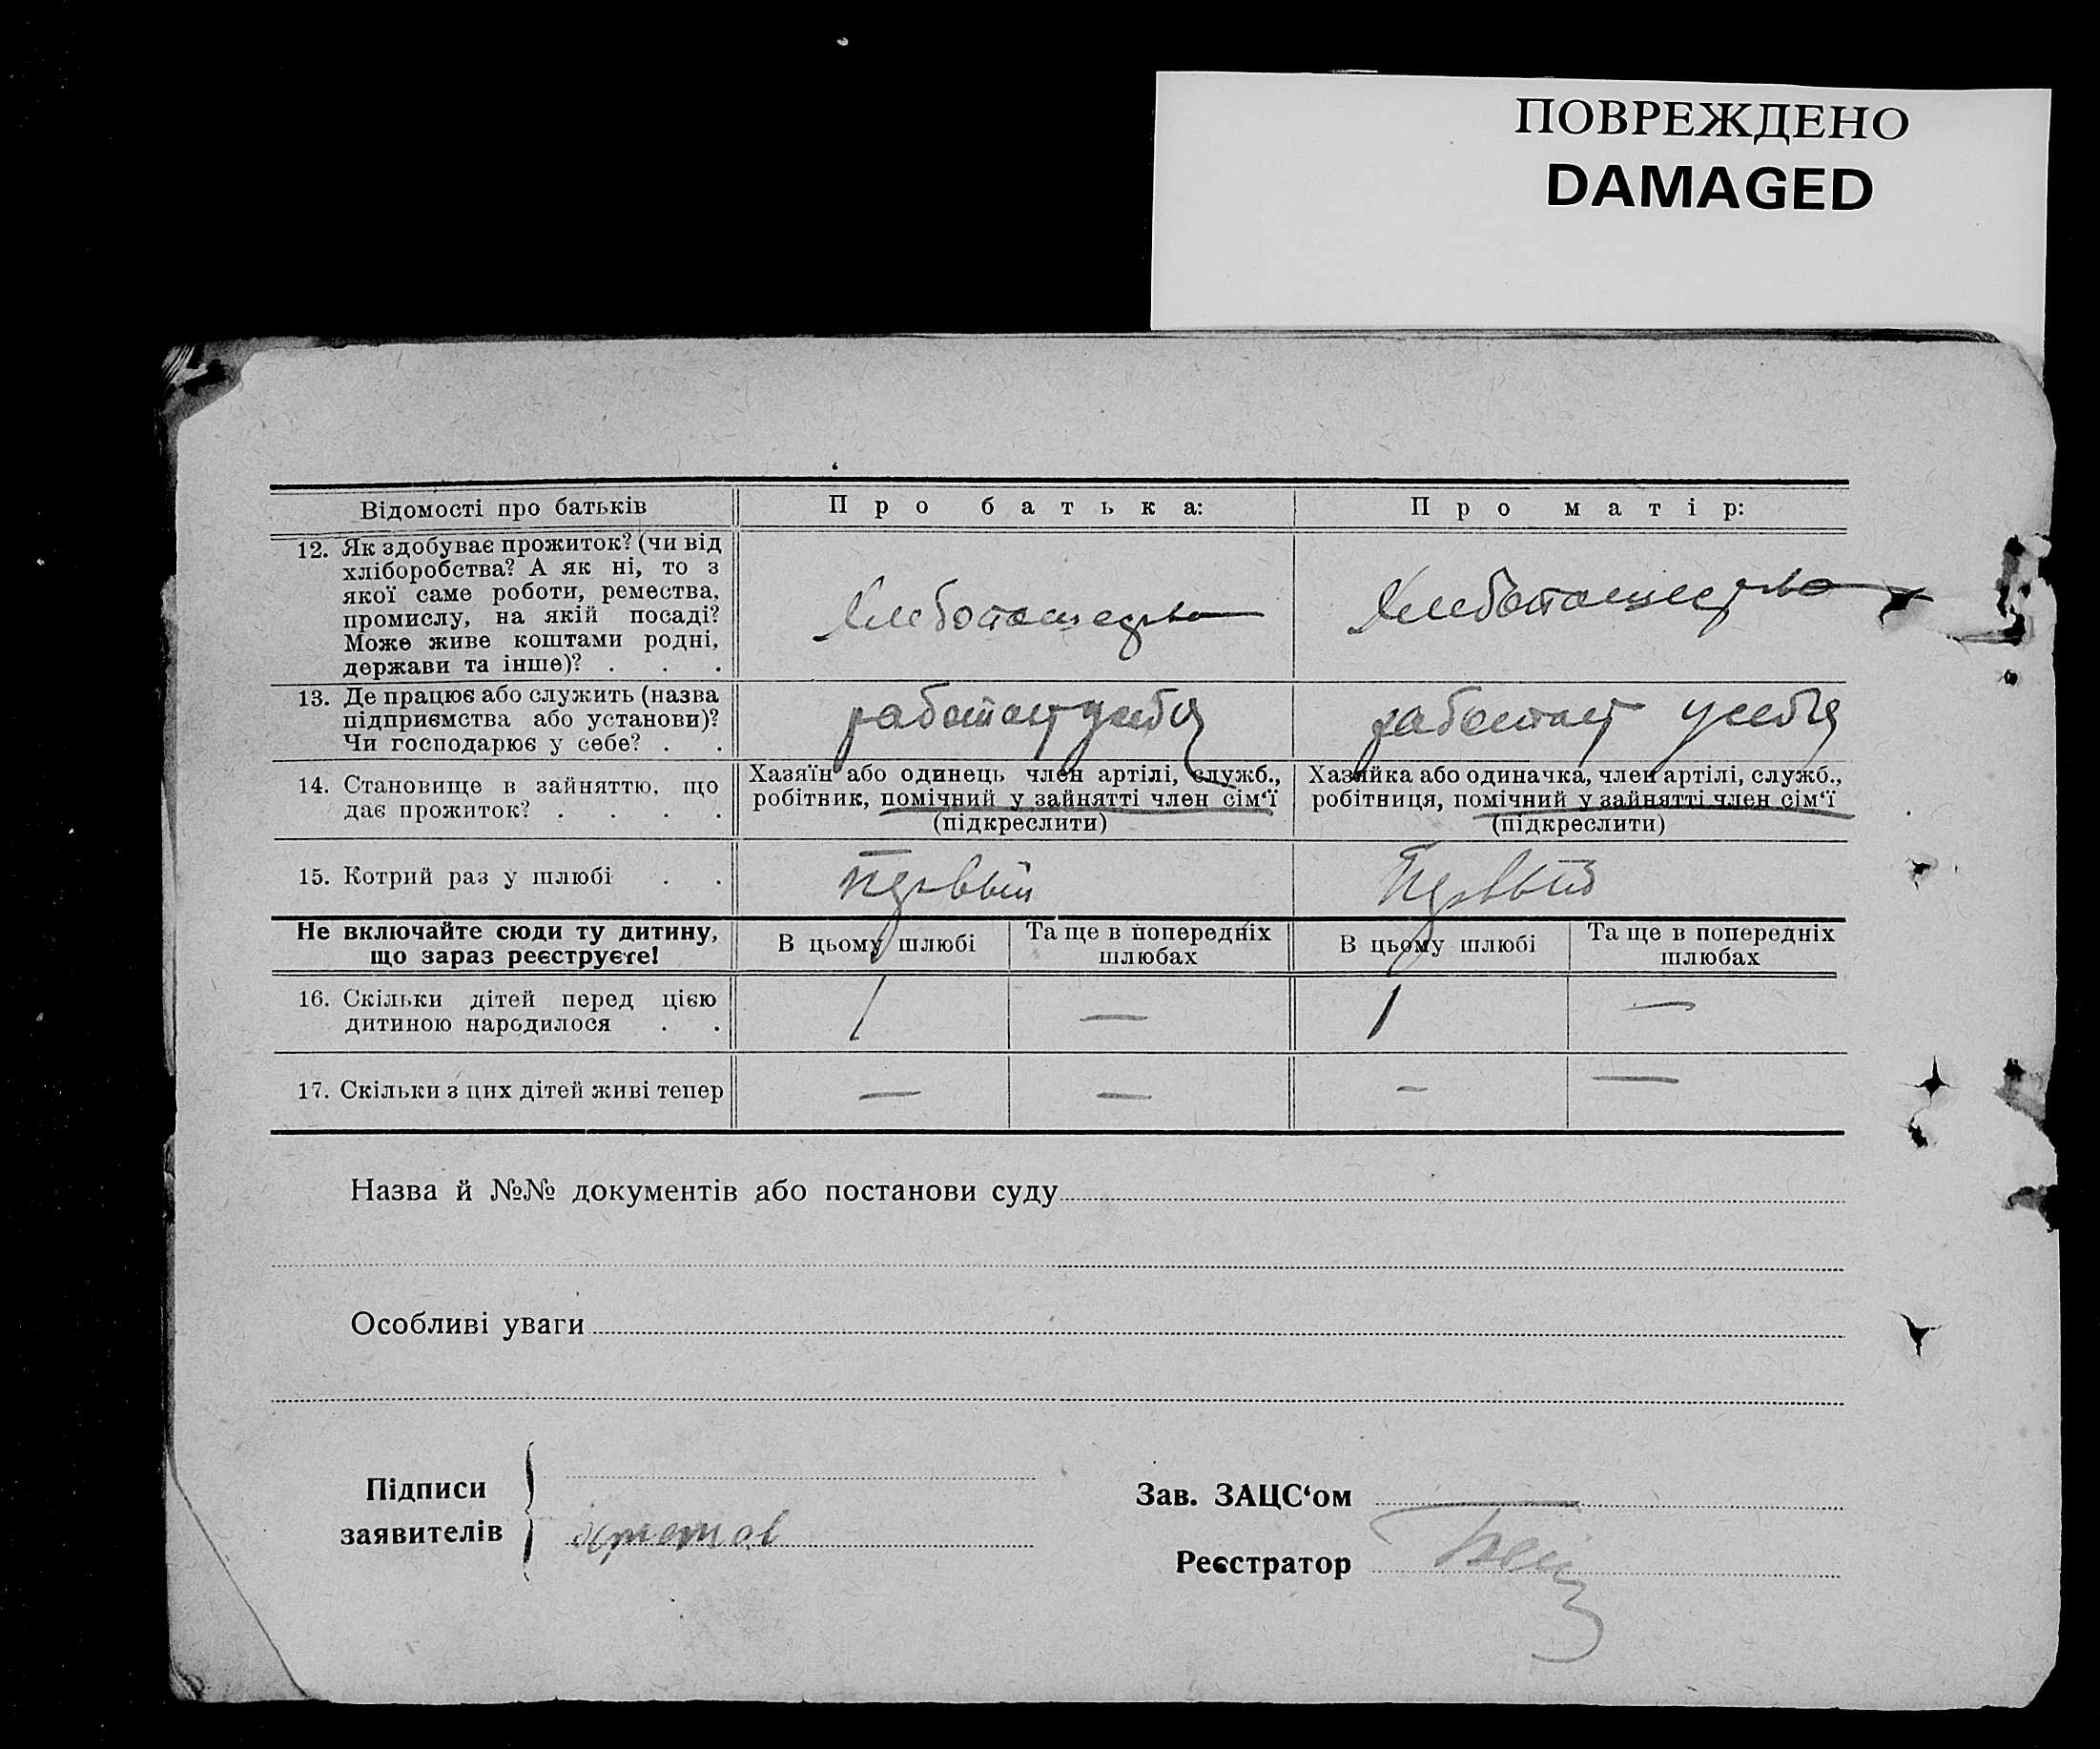 ПОВРЕЖДЕНО
DAMAGED
Відомості про батьків
Про батька:
Про матір:
12. Як здобуває прожиток? (чи від
хліборобства? А як ні, то з
якої саме роботи, ремества,
промислу, на якій посаді?
Може живе коштами родні,
держави та інше)? . . .
Хлебопашество
Хлебопашество
13. Де працює або служить (назва
підприємства або установи)?
Чи господарює у себе? . .
работает у себя
работает у себя
14. Становище в зайняттю, що
дає прожиток? . . . .
Хазяїн або одинець член артілі, служб.,
робітник, помічний у зайнятті член сім‘ї
(підкреслити)
Хазяйка або одиначка, член артілі, служб.,
робітниця, помічний у зайнятті член сім‘ї
(підкреслити)
15. Котрий раз у шлюбі . .
Первый
Первый
Не включайте сюди ту дитину,
що зараз реєструєте!
В цьому шлюбі
Та ще в попередніх
шлюбах
В цьому шлюбі
Та ще в попередніх
шлюбах
16. Скільки дітей перед цією
дитиною народилося . .
1
—
1
—
17. Скільки з цих дітей живі тепер
—
—
—
—
Назва й №№ документів або постанови суду
Особливі уваги
Підписи
заявителів
Зав. ЗАЦС‘ом
Реєстратор